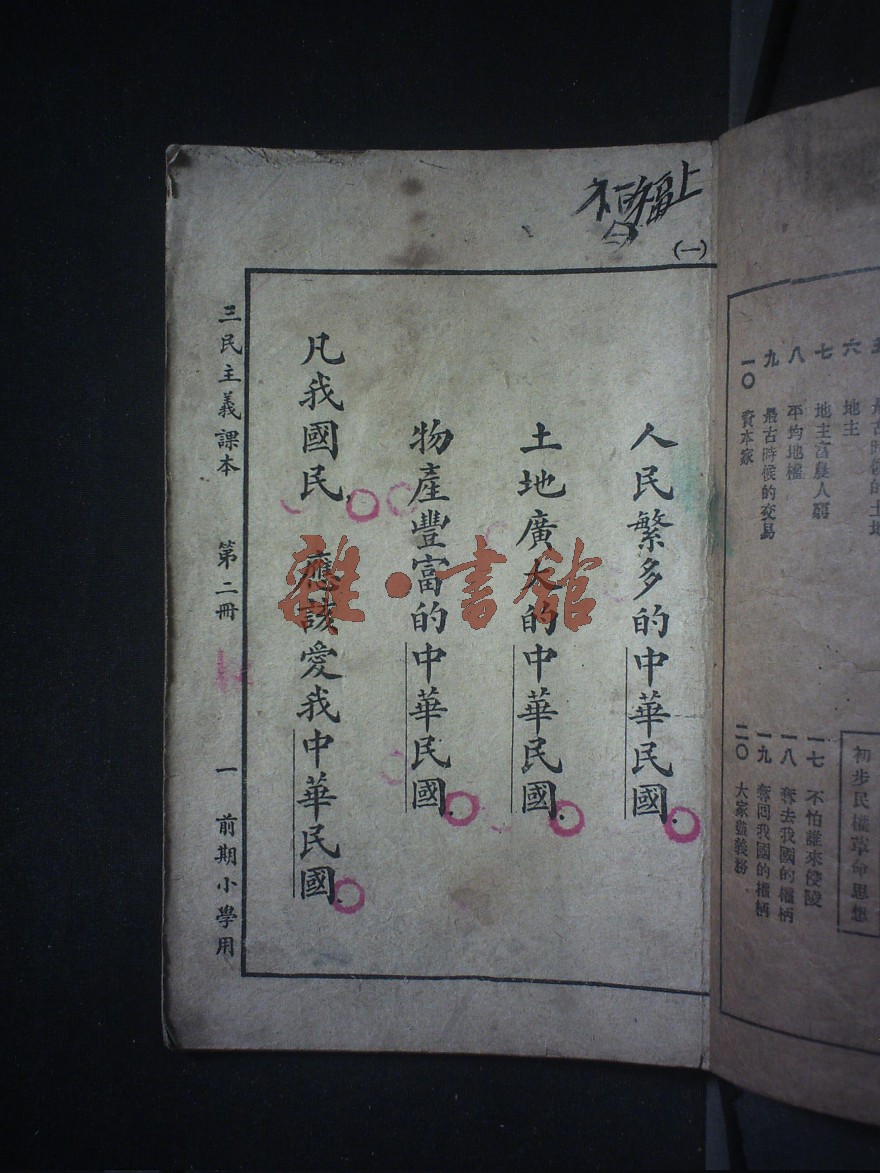 五
六 地主
七 地主富農人窮
八 平均地權
九 最古時候的交易
一〇 資本家
初步民權革命思想
一七 不怕誰來侵陵
一八 奪去我國的權柄
一九 奪回我國的權柄
二〇 大家盡義務
(一)
人民繁多的中華民國.
土地廣大的中華民國.
物產豐富的中華民國.
凡我國民, 應該愛我中華民國.
三民主義課本 第二冊 一 前期小學用
雜·書館